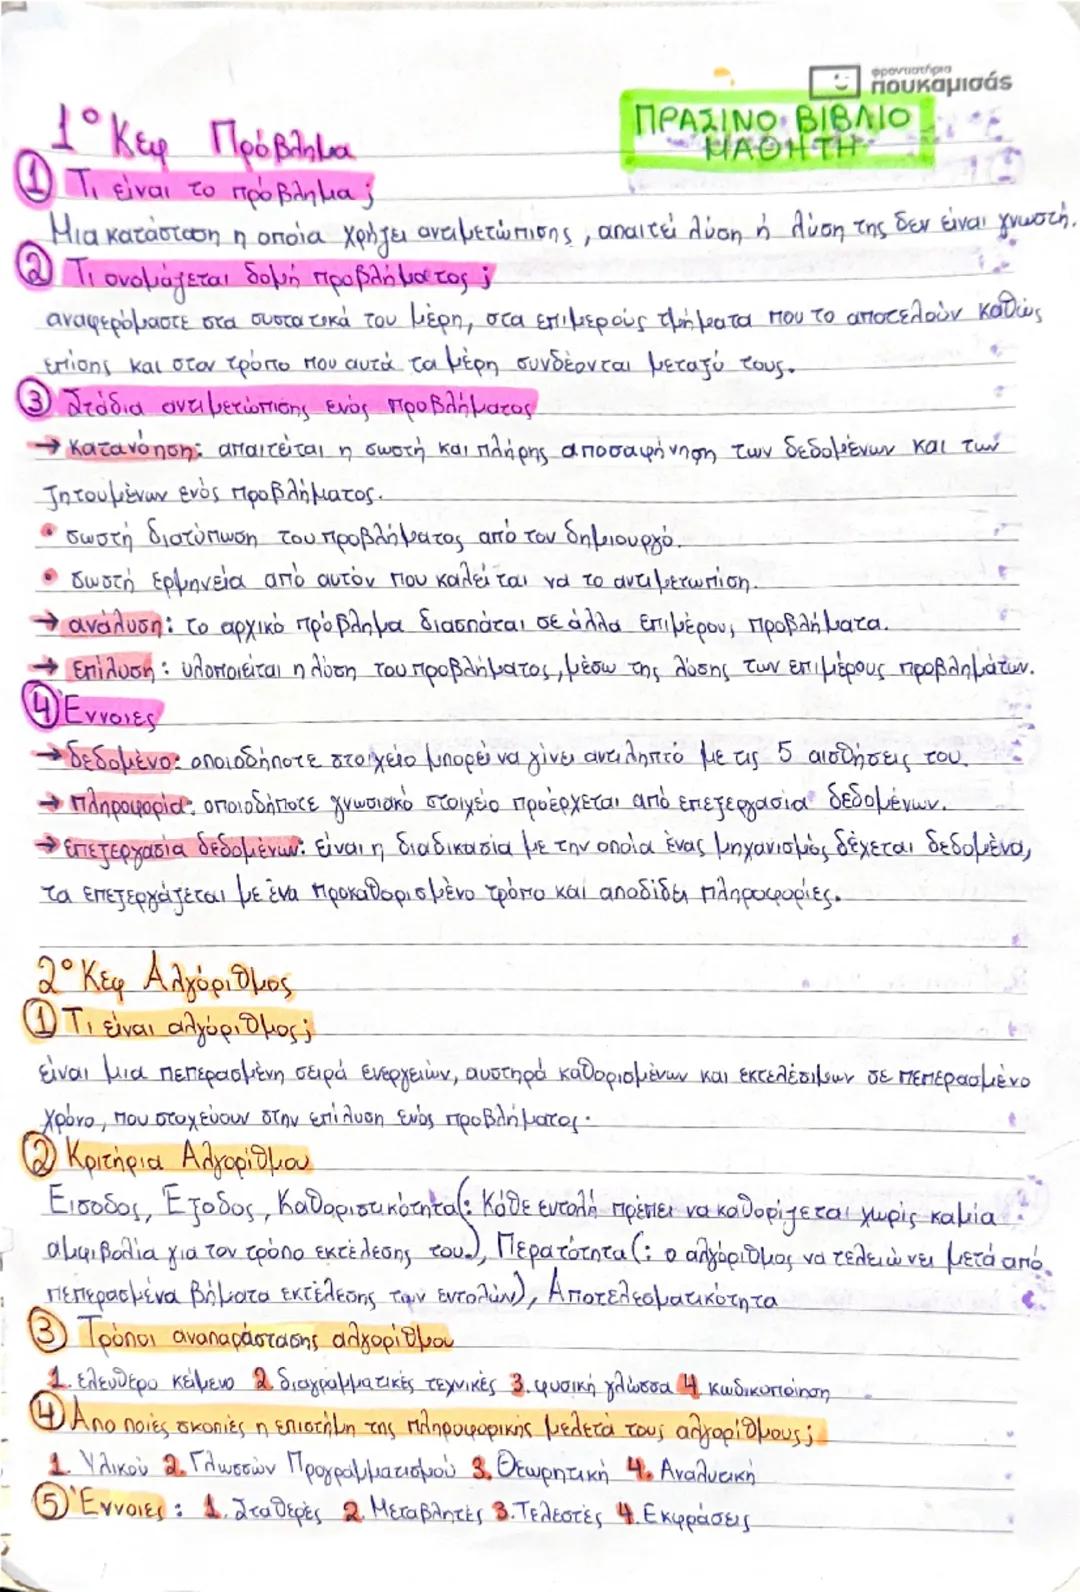 φροντιστήρια
πουκαμισάς
ΠΡΑΣΙΝΟ ΒΙΒΛΙΟ
ΜΑΘΗΤΗ
1° Κεφ Πρόβλημα
① Τι είναι το πρόβλημα;
Μια κατάσταση η οποία χρήζει αντιμετώπισης, απαιτεί λύση ή λύση της δεν είναι γνωστή.
② Τι ονομάζεται δομή προβλήματος;
αναφερόμαστε στα συστατικά του μέρη, στα επιμερούς τμήματα που το αποτελούν καθώς
επίσης και στον τρόπο που αυτά τα μέρη συνδέονται μεταξύ τους.
③ Στάδια αντιμετώπισης ενός προβλήματος
→ κατανόηση: απαιτείται η σωστή και πλήρης αποσαφήνηση των δεδομένων και των
ζητουμένων ενός προβλήματος.
• σωστή διατύπωση του προβλήματος από τον δημιουργό.
• σωστή ερμηνεία από αυτόν που καλείται να το αντιμετωπίση.
→ ανάλυση: το αρχικό πρόβλημα διασπάται σε άλλα επιμέρους προβλήματα.
→ επίλυση: υλοποιείται η λύση του προβλήματος, μέσω της λύσης των επιμέρους προβλημάτων.
④ Έννοιες
→ δεδομένο: οποιοδήποτε στοιχείο μπορεί να γίνει αντιληπτό με τις 5 αισθήσεις του.
→ πληροφορία: οποιοδήποτε γνωσιακό στοιχείο προέρχεται από επεξεργασία δεδομένων.
→ επεξεργασία δεδομένων: είναι η διαδικασία με την οποία ένας μηχανισμός δέχεται δεδομένα,
τα επεξεργάζεται με ένα προκαθορισμένο τρόπο και αποδίδει πληροφορίες.
2° Κεφ Αλγόριθμος
① Τι είναι αλγόριθμος;
είναι μια πεπερασμένη σειρά ενεργειών, αυστηρά καθορισμένων και εκτελέσιμων σε πεπερασμένο
χρόνο, που στοχεύουν στην επίλυση ενός προβλήματος.
② Κριτήρια Αλγορίθμου
Είσοδος, Έξοδος, Καθοριστικότητα(: Κάθε εντολή πρέπει να καθορίζεται χωρίς καμία
αμφιβολία για τον τρόπο εκτέλεσης του.), Περατότητα(: ο αλγόριθμος να τελειώνει μετά από
πεπερασμένα βήματα εκτέλεσης των εντολών), Αποτελεσματικότητα
③ Τρόποι αναπαράστασης αλγορίθμου
1. ελεύθερο κείμενο 2. διαγραμματικές τεχνικές 3. φυσική γλώσσα 4 κωδικοποίηση
④ Απο ποιές σκοπιές η επιστήμη της πληροφορικής μελετά τους αλγορίθμους;
1. Υλικού 2. Γλωσσών Προγραμματισμού 3. Θεωρητική 4. Αναλυτική
⑤ Έννοιες: 1. Σταθερές 2. Μεταβλητές 3. Τελεστές 4. Εκφράσεις